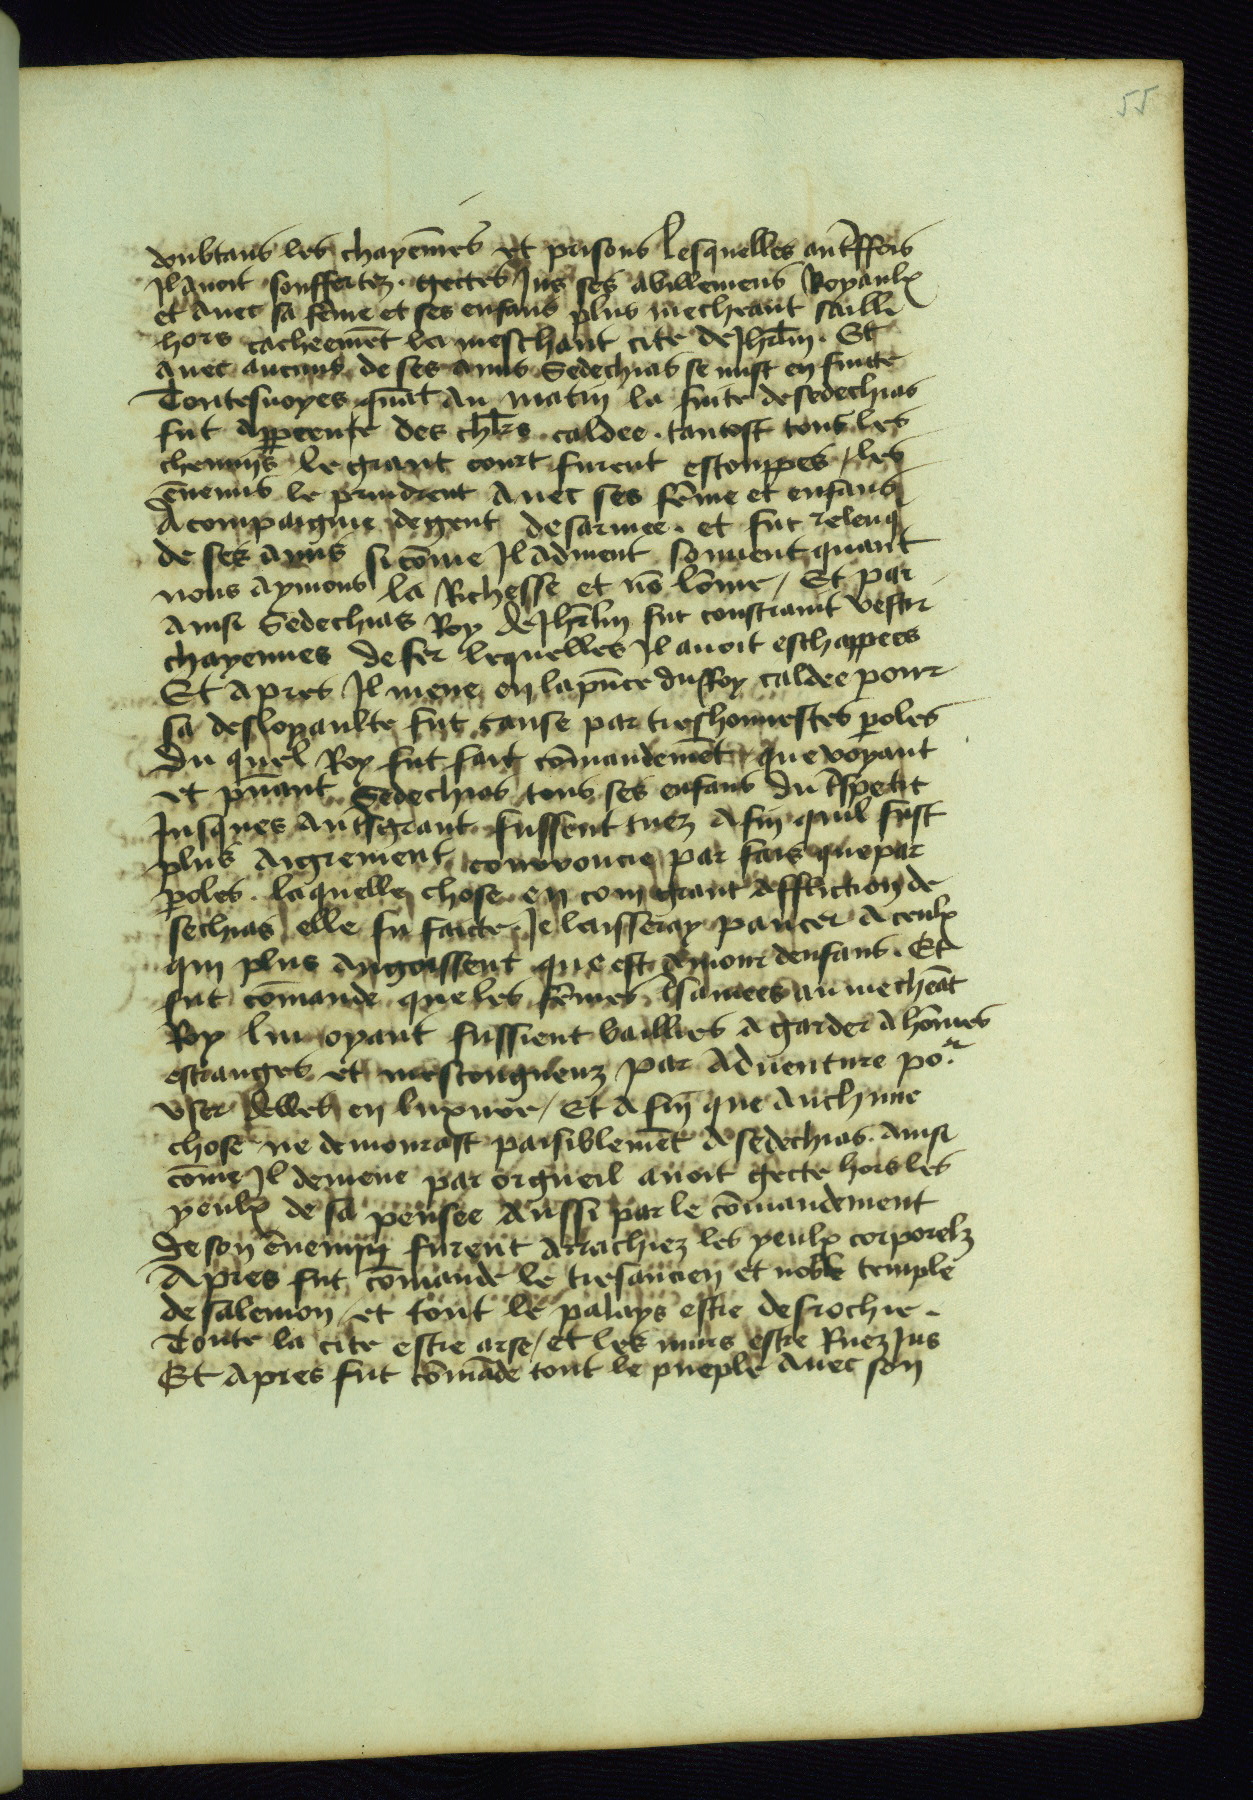 55
doubtans les chayẽnes et prisons lesquelles aut̃ffois
Il auoit souffertez. gectes Jus ses abillemens Royaulx
et auec sa fẽme et ses enfans plus mecheant saille
hors cacheemẽt la meschant cite de Jhrl̃m. Et
auec aucuns de ses amis Sedechias se mist en fuitte
Toutesuoyes quãt au matin la fuite de sedechias
fut apperceute des chl̃rs caldee. tantost tous les
chemins le grant court furent estouppes / les
ẽnemis le prindrent auec ses fẽme et enfans
Acompaignie de gent desarmee. et fut relenq
de ses amis si cõme Il aduient souuent quant
nous aymons la Richesse et nõ lõme / Et par
ainsi Sedechias Roy de Jhrl̃m fut constraint vestir
chayennes de fer lequelles Il auoit eschappees
Et apres Il mene en la pñce du Roy caldee pour
sa desloyaulte fut cause par tres honnestes poles
Du quel Roy fut fait cõmandemẽt que voyant
et pñant Sedechias tous ses enfans du t̃spetit
Jusques au t̃sgrant fussent tuez afin quil fust
plus aigrement courroucie par fais que par
poles. laquelle chose en com grant affliction de
sechias elle fu faicte. Je laisseray pancer a ceulx
qui plus angoissent que est amour denfans. Et
fut cõmande que les fẽmes t̃samees au mecheãt
Roy lui oyant fussient baillies a garder a hõmes
estranges et mescongneuz par aduenture por
vser delles en luxure / Et a fin que aulchune
chose ne demourast paisiblemẽt a sedechias. ainsi
cõme Il demene par orgueil auoit gecte hors les
yeulx de sa pensee aussi par le cõmandement
de son ẽnemin furent arrachiez les yeulx corporelz
Apres fut cõmande le tresancien et noble temple
de salemon / et tout le palays estre desrochie.
Toute la cite estre arse / et les murs estre Ruez Jus
Et apres fut cõmãde tout le pueple auec son